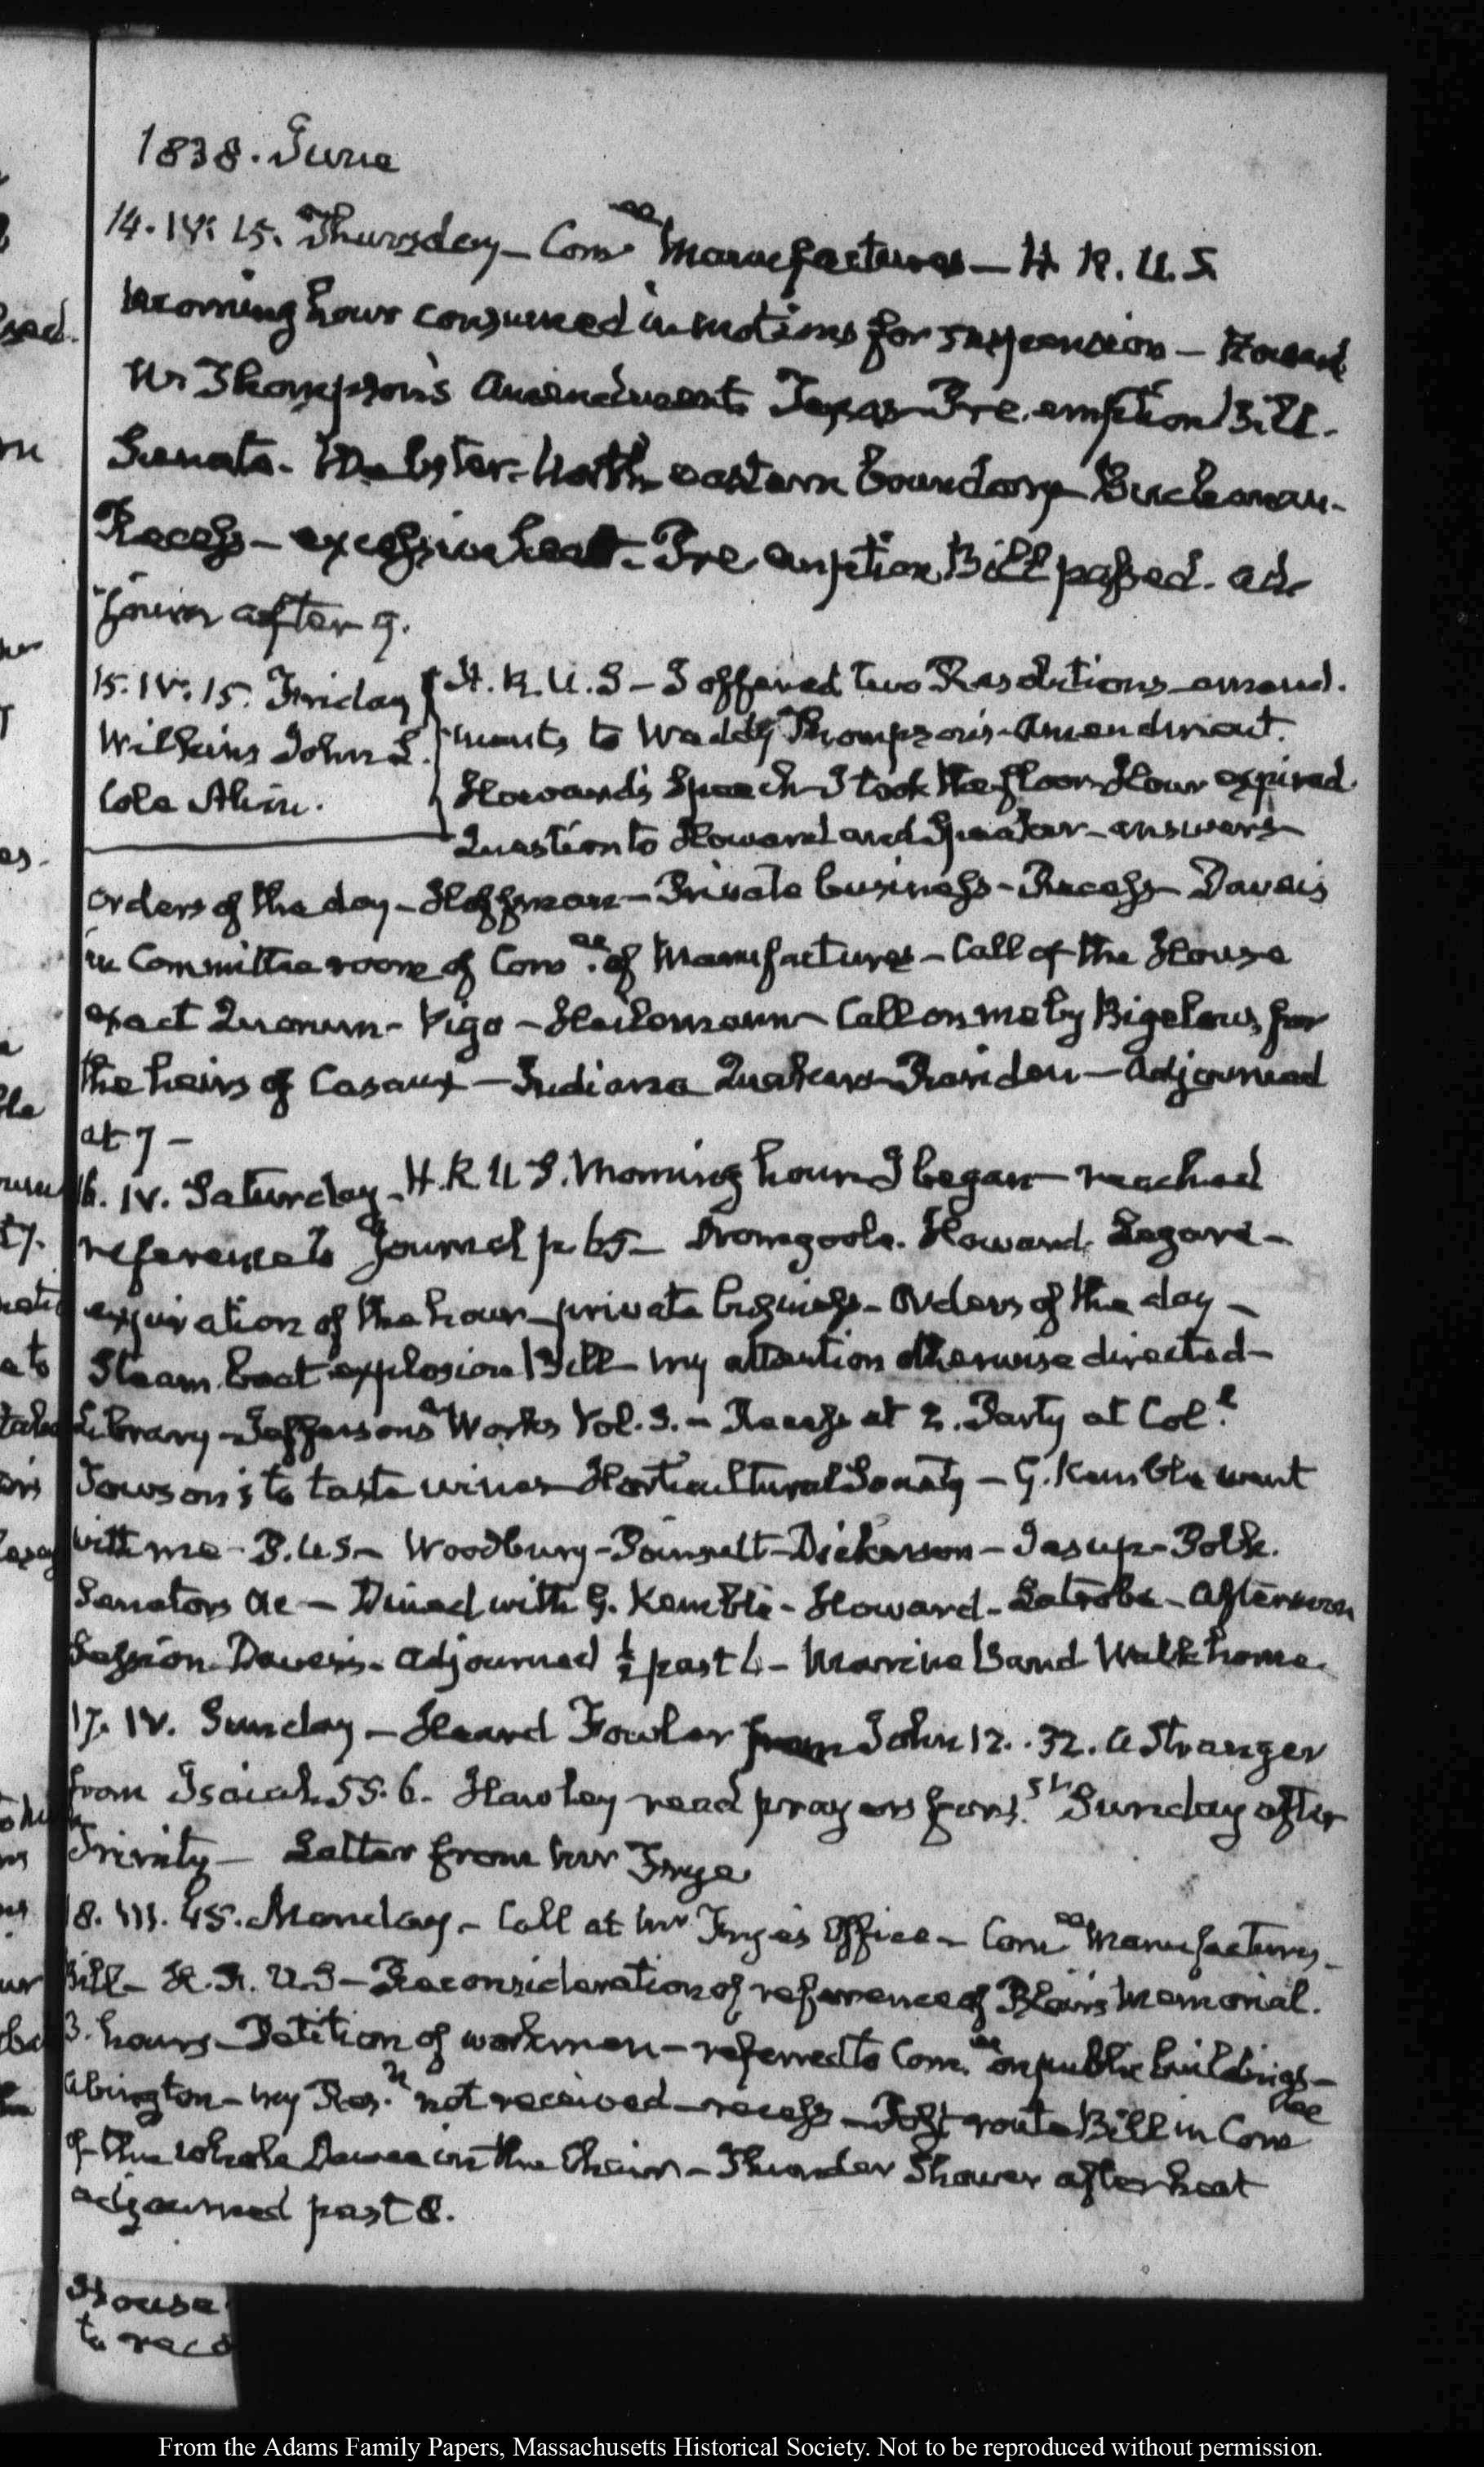 1838. June
14. IV: 15. Thursday — Com.ee Manufactures — H. R. U. S.
Morning hour consumed in motions for suspension — Howard
W. Thompson's Amendment Texas Pre-emption Bill.
Senate. Webster. North eastern boundary Buchanan.
Recess — excessive heat. Pre emption Bill passed. ad-
journ after 9.
15. IV. 15. Friday H. R. U. S — I offered two Resolutions — amend-
Wilkins John L. ments to Waddy Thompson's Amendment.
Cole Howard's Speech — I took the floor. Hour expired.
Question to Howard and Speaker — answers
orders of the day — Hoffman — Private business — Recess — Davis
in Committee room of Com.ee of Manufactures — Call of the House
exact Quorum — Vigo — Call on me by Bigelow, for
the heirs of Casaux — Indiana Quakers — Rariden — Adjourned
at 7 —
16. IV. Saturday — H. R. U S. Morning hour I began — reached
reference to Journal p. 65 — Dromgoole. Howard. Legare —
expiration of the hour — private business — Orders of the day —
Steam boat explosion Bill — my attention otherwise directed —
Library — Jefferson's Works Vol. 3. — Recess at 2. Party at Col.l
Towson's to taste wines — Horticultural Society — G. Kemble went
with me — P. U. S — Woodbury — Poinsett — Dickerson — Jesup — Polk.
Senators &c — Dined with G. Kemble — Howard — Latrobe — Afternoon
Session — Adjourned ½ past 6 — Marine Band Walk home.
17. IV. Sunday — Heard Fowler from John 12..32. A Stranger
from Isaiah 55. 6. Hawley read prayers for 1.st Sunday after
Trinity — Letter from Mr Frye
18. III. 45. Monday — Call at Mr Frye's Office — Com.ee Manufactures —
Bill — H. R. U S — Reconsideration of reference of Blair's Memorial.
3. hours — Petition of workmen — referred to Com.ee on public buildings —
Abington — my Res.n not received — recess — Post route Bill in Com.ee
of the whole in the Chair — Thunder Shower after heat
adjourned past 8.
House
to reco
From the Adams Family Papers, Massachusetts Historical Society. Not to be reproduced without permission.